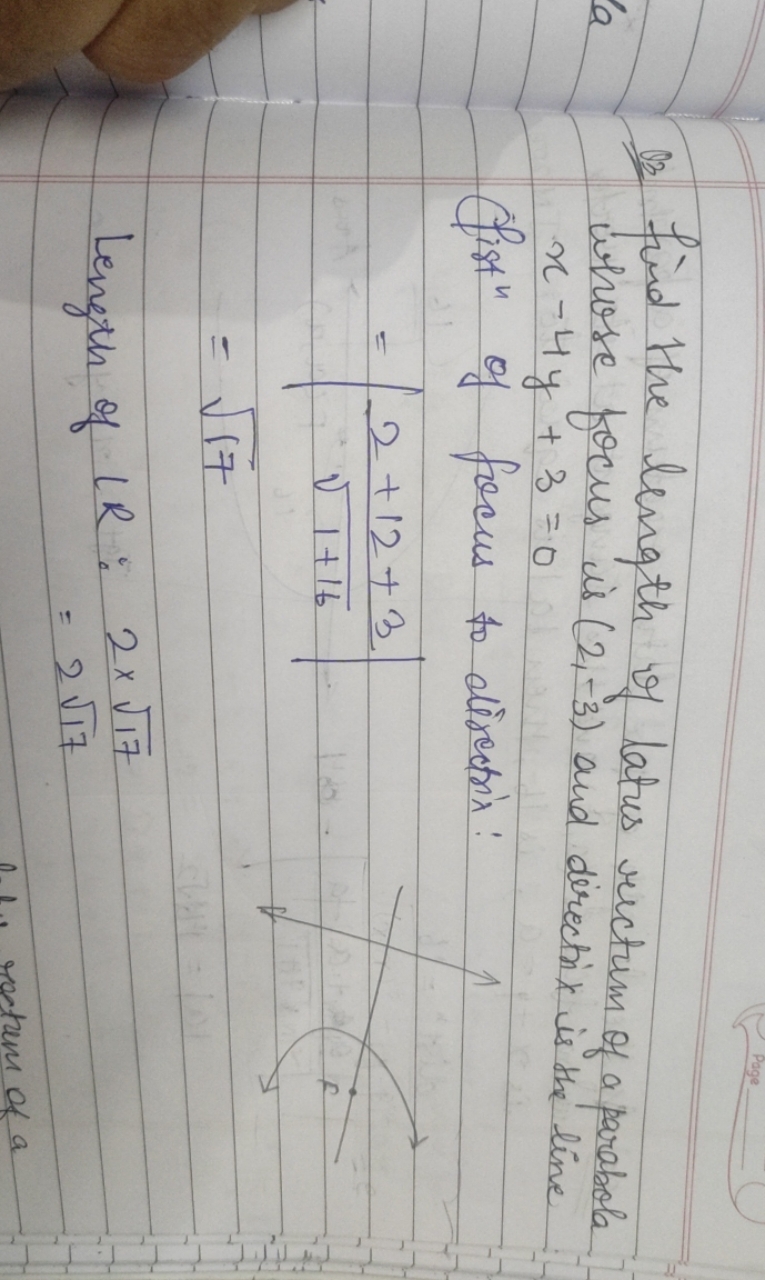 la
Page
Q3 find the length of latus rectum of a parabola
whose focus is (2,-3) and directrix is the line
x - 4y + 3 = 0
Distⁿ of focus to directrix :
= | 2 + 12 + 3 / √1+16 |
= √17
F
Length of LR : 2 × √17
= 2√17
latus rectum of a